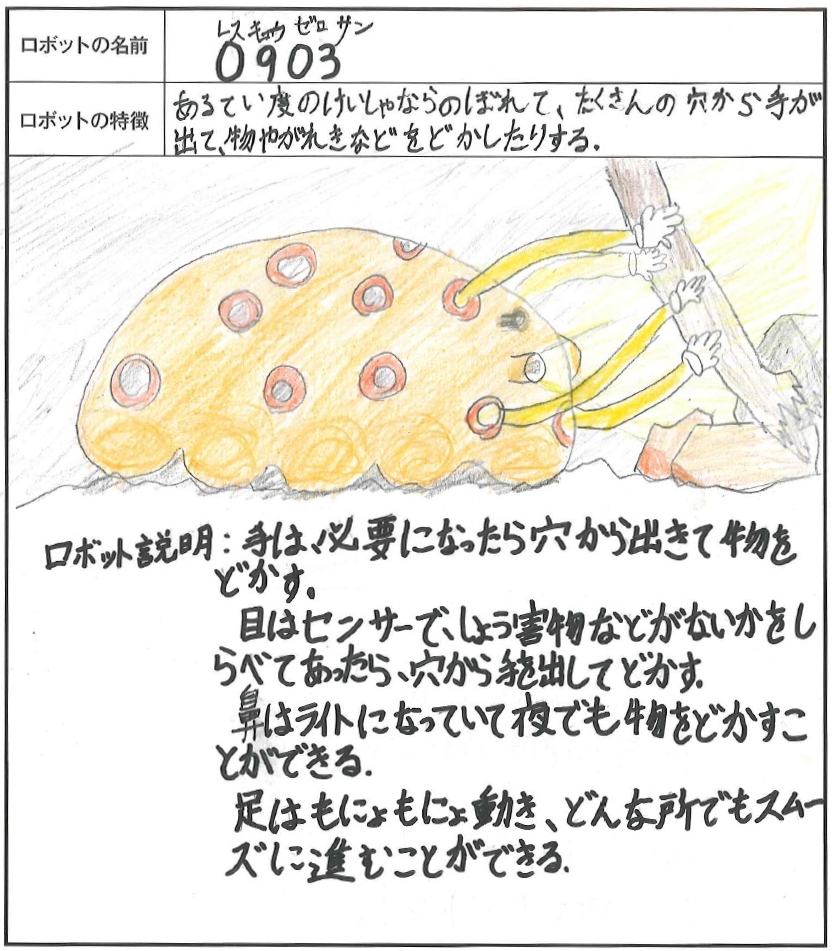 ロボットの名前
レスキュウ ゼロ サン
0903
ロボットの特徴
あるてい度のけいしゃならのぼれて、たくさんの穴から手が
出て、物やがれきなどをどかしたりする.
ロボット説明:手は、必要になったら穴から出きて物を
どかす。
目はセンサーで、しょう害物などがないかをし
らべてあったら、穴から手を出してどかす.
鼻はライトになっていて夜でも物をどかすこ
とができる.
足はもにょもにょ動き、どんな所でもスムー
ズに進むことができる.